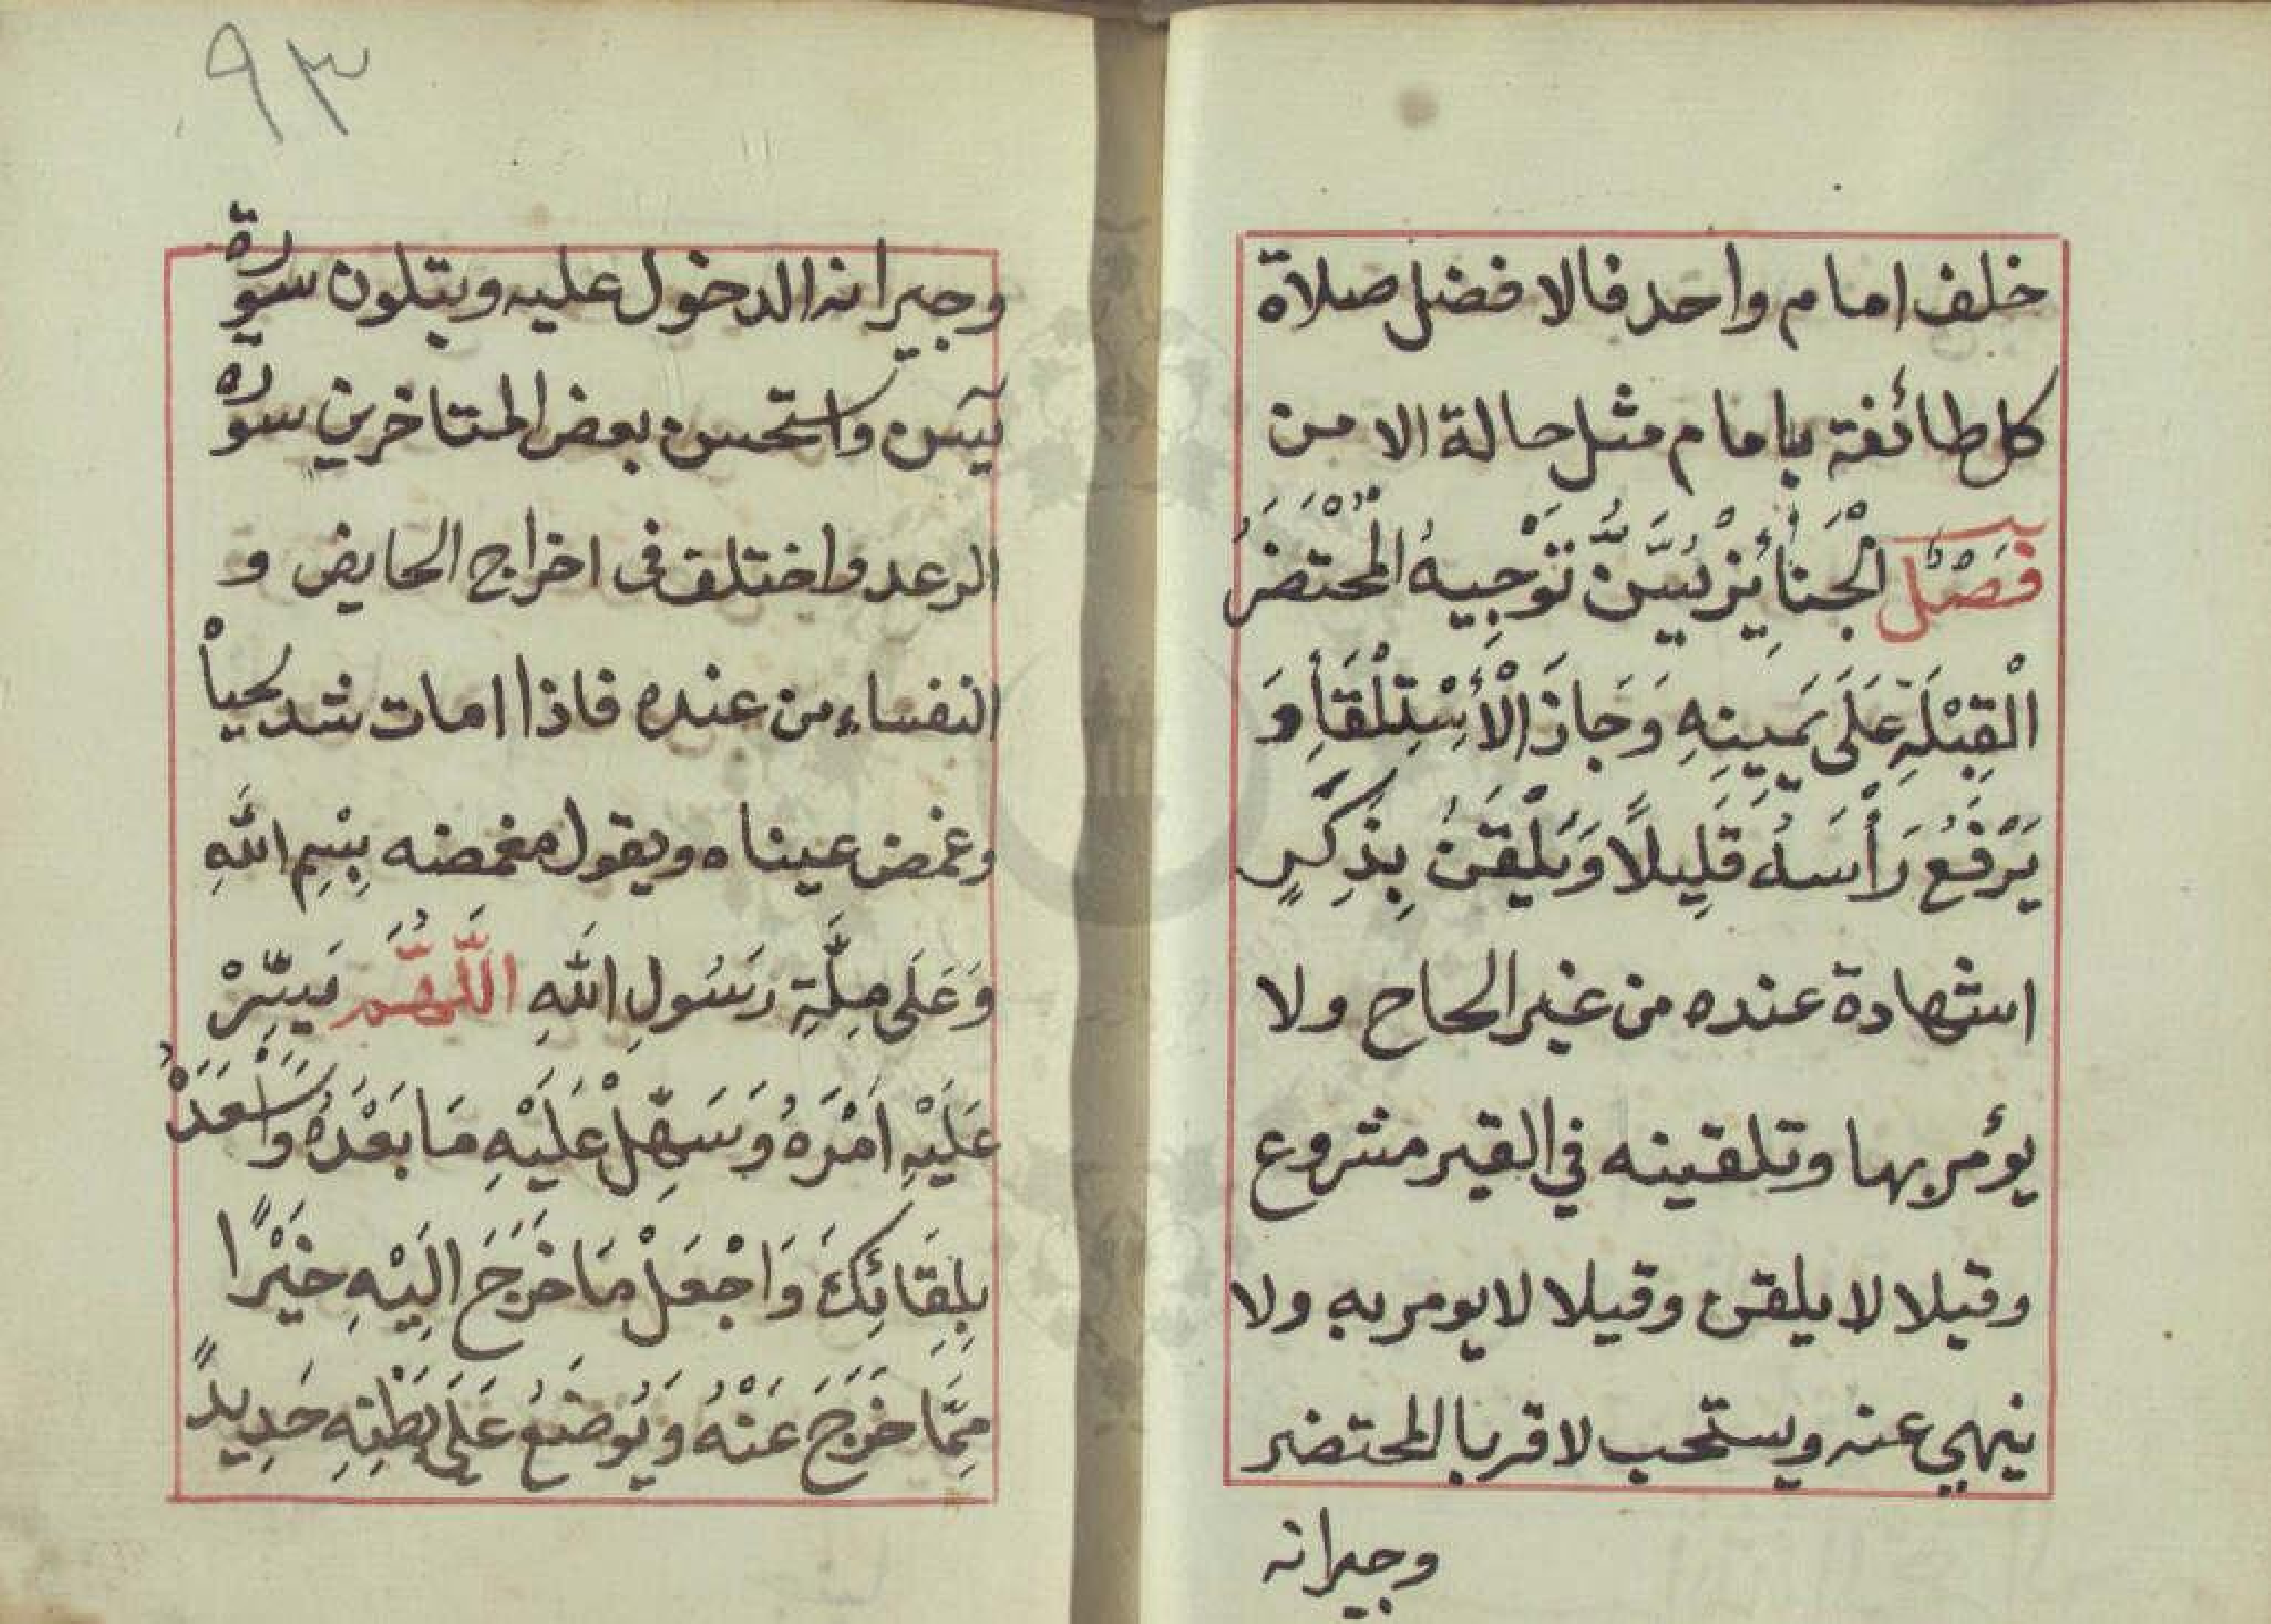 خلف امام واحد فالافضل صلاة
كل طائفة بامام مثل حالة الامن
فَصْلٌ الْجَنَائِزْ يُسَّنُّ تَوْجِيهُ الْمُحْتَضَرُ
الْقِبْلَةِ عَلَى يَمِينِهِ وَجَازَ الْأَسْتِلْقَأِ وَ
يَرْفَعُ رَأْسَهُ قَلِيلًا وَيَلْقَنُ بِذِكْرٍ
اشهادة عنده من غير الحاح ولا
يؤمر بها وتلقينه في القبر مشروع
وقيلا لا يلقن وقيلا لا يومر به ولا
ينهي عنه ويستحب لاقربا المحتضر
وجيرانه
٩٣
وجيرانه الدخول عليه ويتلون سورة
يٓسن واستحسن بعض المتاخرين سورة
الرعد واختلف في اخراج الحايض و
النفساء من عنده فاذا امات شد لحياْ
وغمض عيناه ويقول مغمضه بِسْمِ اللَّهِ
وَعَلَى مِلَّةِ رَسُولِ اللَّهِ اللَّهُمَّ يَسِّرْ
عَلَيْهِ اَمْرَهُ وَسَهِّلْ عَلَيْهِ مَا بَعْدَهُ وَاَسْعَدْهُ
بِلِقَائِكَ وَاجْعَلْ مَا خَرَجَ اِلَيْهِ خَيْرًا
مِمَّا خَرَجَ عَنْهُ وَيُوضَعُ عَلَى بَطْنِهِ حَدِيدً